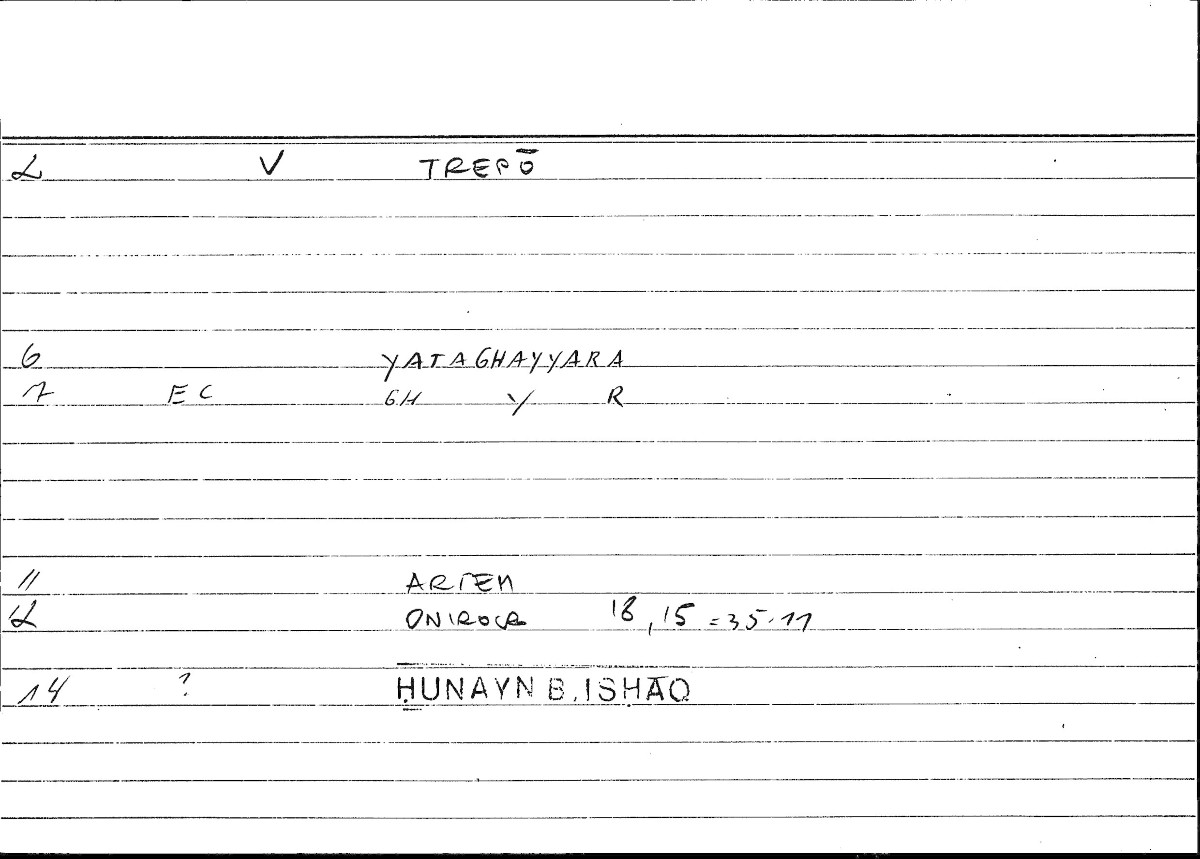 2 V TREPŌ
6 YATAGHAYYARA
7 EC GH Y R
11 ARTEM
12 ONIROCR 18,15 = 35.11
14 ? ḤUNAYN B. ISḤĀQ